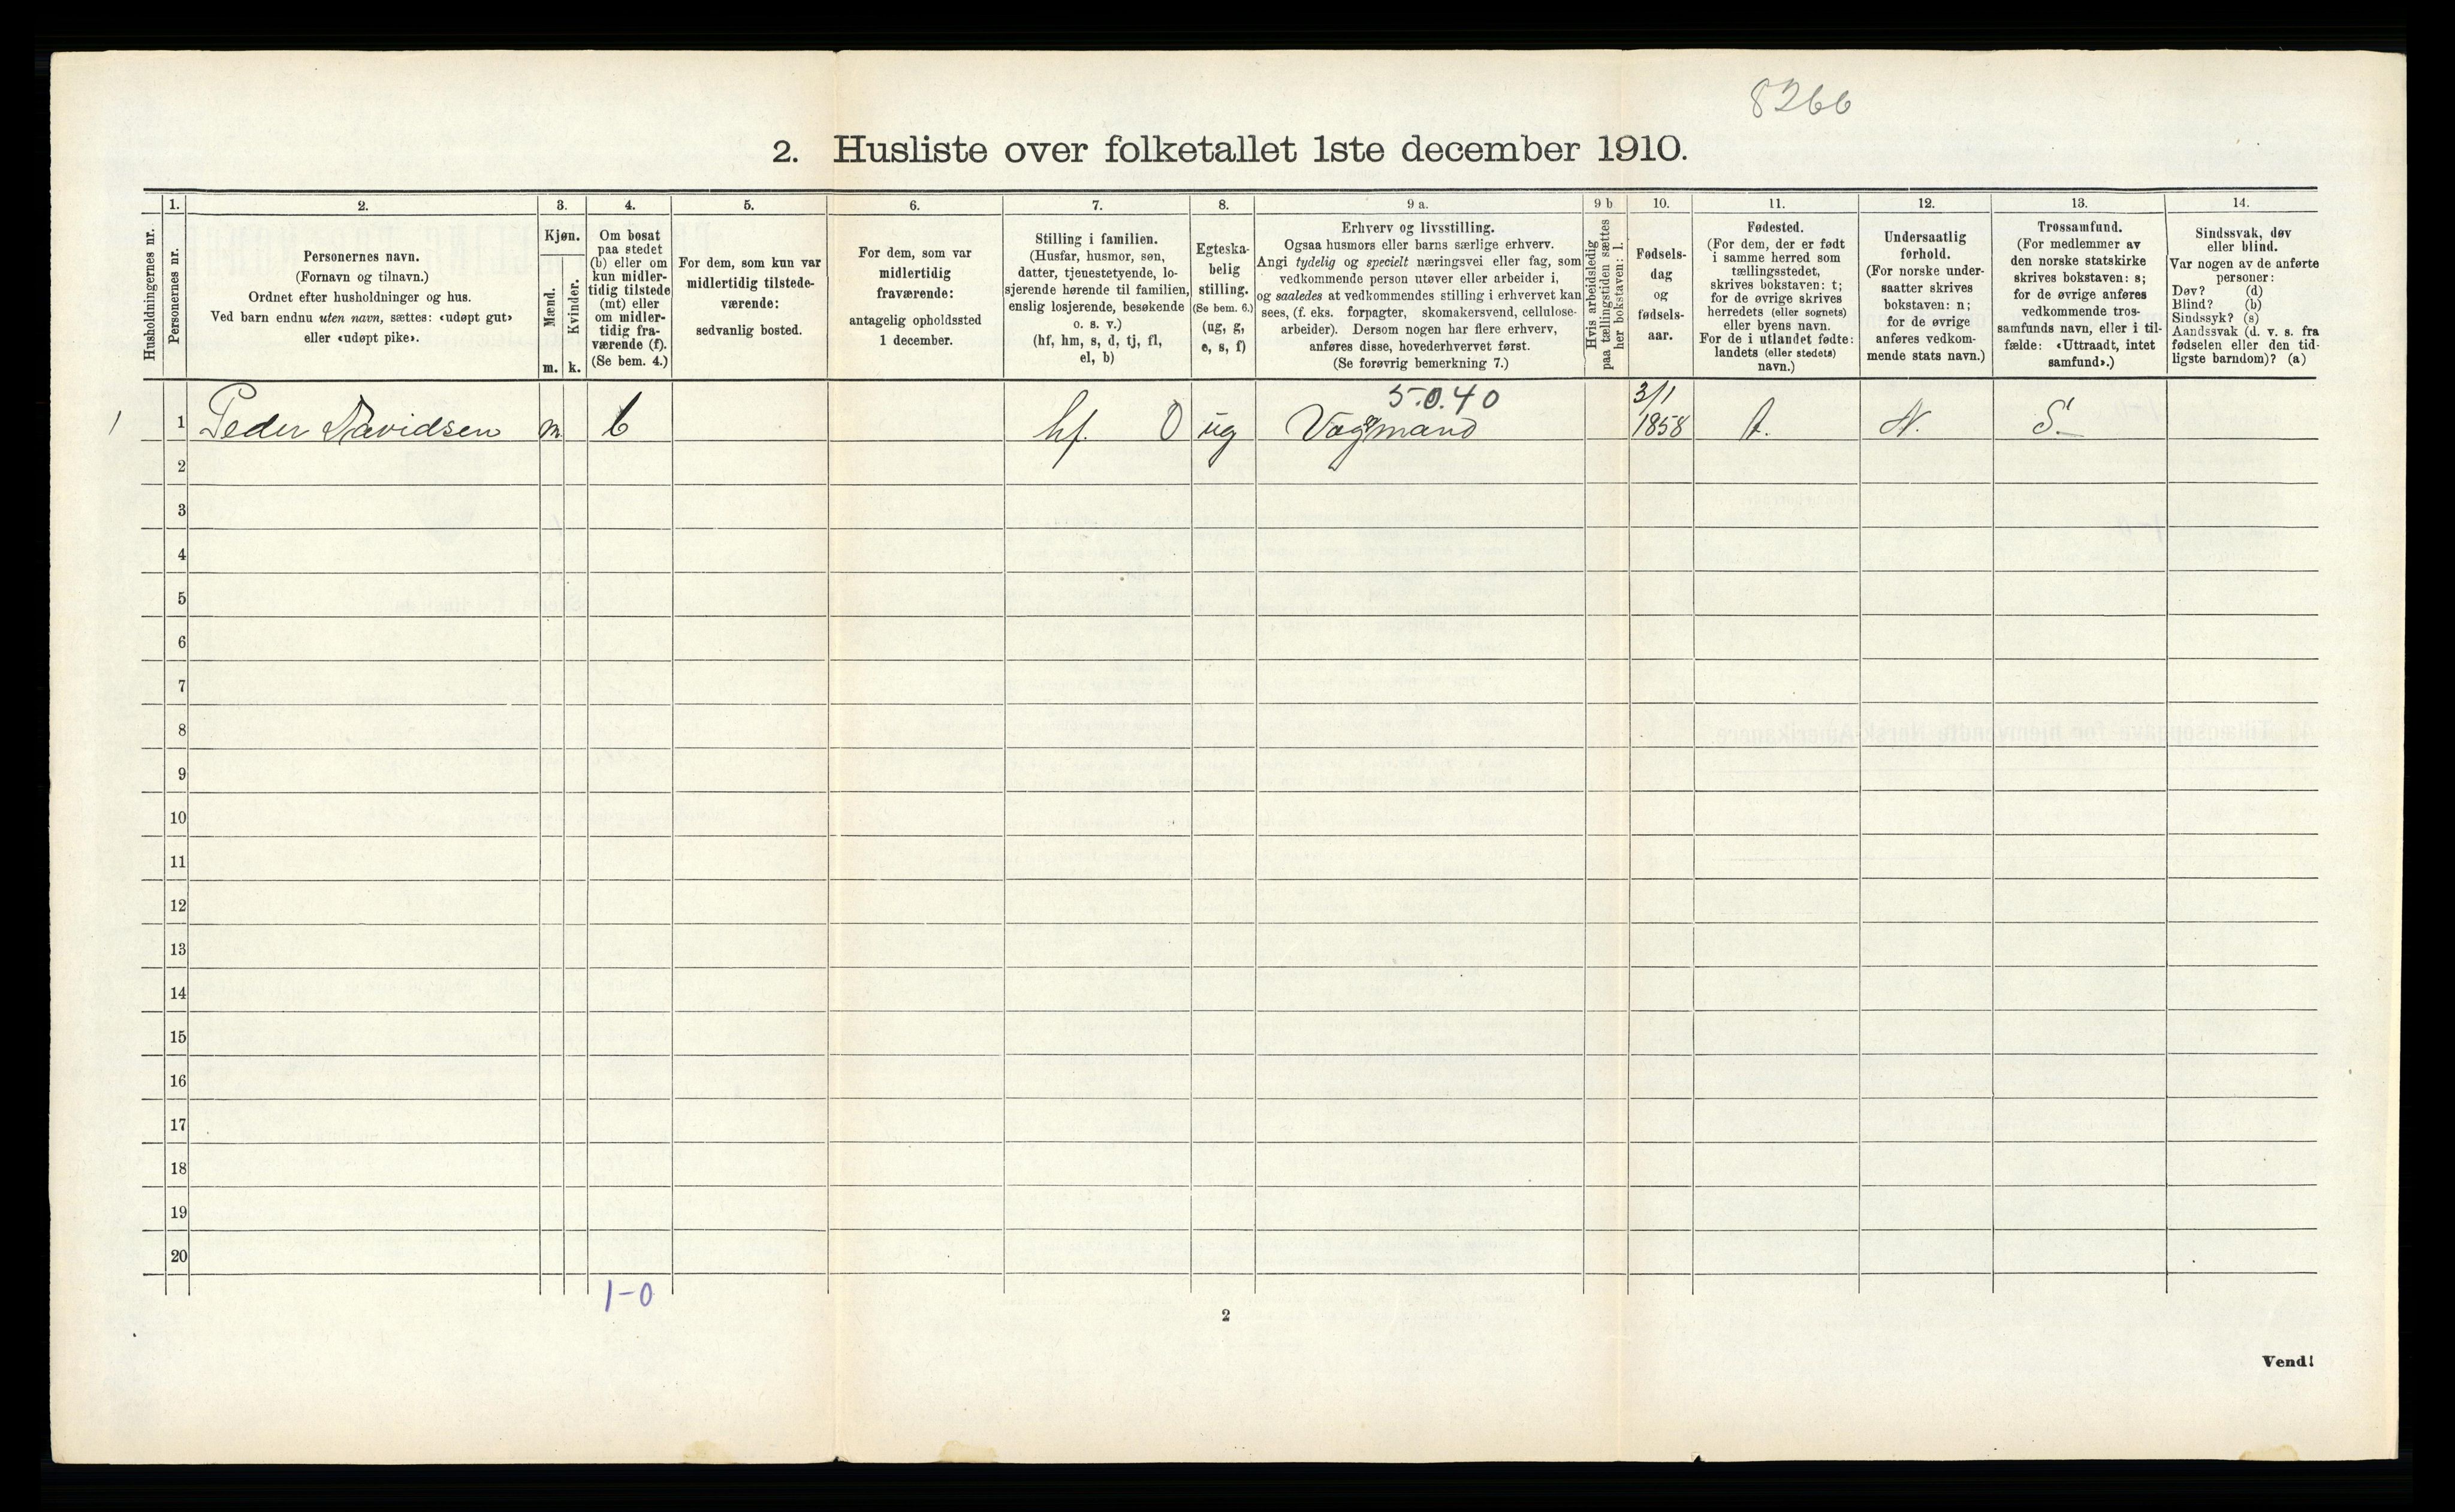 8266
2. Husliste over folketallet 1ste december 1910.
Husholdningernes nr.
1.
Personernes nr.
2.
Personernes navn.
(Fornavn og tilnavn.)
Ordnet efter husholdninger og hus.
Ved barn endnu uten navn, sættes: «udøpt gut»
eller «udøpt pike».
3.
Kjøn.
Mænd.
Kvinder.
m. k.
4.
Om bosat
paa stedet
(b) eller om
kun midler-
tidig tilstede
(mt) eller
om midler-
tidig fra-
værende (f).
(Se bem. 4.)
5.
For dem, som kun var
midlertidig tilstede-
værende:
sedvanlig bosted.
6.
For dem, som var
midlertidig
fraværende:
antagelig opholdssted
1 december.
7.
Stilling i familien.
(Husfar, husmor, søn,
datter, tjenestetyende, lo-
sjerende hørende til familien,
enslig losjerende, besøkende
o. s. v.)
(hf, hm, s, d, tj, fl,
el, b)
8.
Egteska-
belig
stilling.
(Se bem. 6.)
(ug, g,
e, s, f)
9 a.
Erhverv og livsstilling.
Ogsaa husmors eller barns særlige erhverv.
Angi tydelig og specielt næringsvei eller fag, som
vedkommende person utøver eller arbeider i,
og saaledes at vedkommendes stilling i erhvervet kan
sees, (f. eks. forpagter, skomakersvend, cellulose-
arbeider). Dersom nogen har flere erhverv,
anføres disse, hovederhvervet først.
(Se forøvrig bemerkning 7.)
9 b
Hvis arbeidsledig
paa tællingstiden sættes
her bokstaven: l.
10.
Fødsels-
dag
og
fødsels-
aar.
11.
Fødested.
(For dem, der er født
i samme herred som
tællingsstedet,
skrives bokstaven: t;
for de øvrige skrives
herredets (eller sognets)
eller byens navn.
For de i utlandet fødte:
landets (eller stedets)
navn.)
12.
Undersaatlig
forhold.
(For norske under-
saatter skrives
bokstaven: n;
for de øvrige
anføres vedkom-
mende stats navn.)
13.
Trossamfund.
(For medlemmer av
den norske statskirke
skrives bokstaven: s;
for de øvrige anføres
vedkommende tros-
samfunds navn, eller i til-
fælde: «Uttraadt, intet
samfund».)
14.
Sindssvak, døv
eller blind.
Var nogen av de anførte
personer:
Døv? (d)
Blind? (b)
Sindssyk? (s)
Aandssvak (d. v. s. fra
fødselen eller den tid-
ligste barndom)? (a)
5.0.40 3/1
1 1 Peder Davidsen m b hf. 0 ug 1858 t. N. S.
2
3
4
5
6
7
8
9
10
11
12
13
14
15
16
17
18
19
20
1-0
2
Vend!